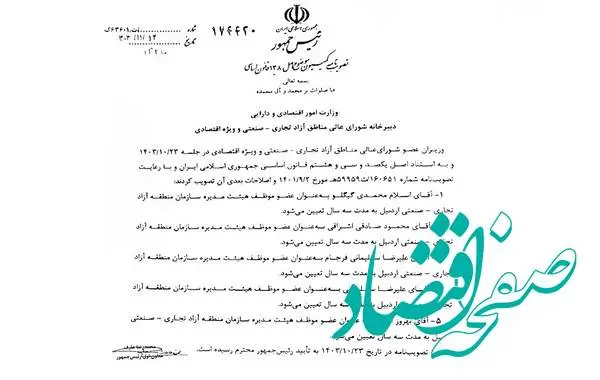 جمهوری اسلامی ایران
رئیس جمهور
تصویب‌نامه کمیسیون موضوع اصل ۱۳۸ قانون اساسی
شماره ۱۷۶۶۲۰
تاریخ
بسمه تعالی
«با صلوات بر محمد و آل محمد»
وزارت امور اقتصادی و دارایی
دبیرخانه شورای عالی مناطق آزاد تجاری - صنعتی و ویژه اقتصادی
وزیران عضو شورای‌عالی مناطق آزاد تجاری - صنعتی و ویژه اقتصادی در جلسه ۱۴۰۳/۱۰/۲۳
و به استناد اصل یکصد و سی و هشتم قانون اساسی جمهوری اسلامی ایران و با رعایت
تصویب‌نامه شماره ۱۶۰۶۵۱/ت۵۹۹۵۹هـ مورخ ۱۴۰۱/۹/۲ و اصلاحات بعدی آن تصویب کردند:
۱- آقای اسلام محمدی گیگلو به‌عنوان عضو موظف هیئت مدیره سازمان منطقه آزاد
تجاری - صنعتی اردبیل به مدت سه سال تعیین می‌شود.
آقای محمود صادقی اشراقی به‌عنوان عضو موظف هیئت مدیره سازمان منطقه آزاد
صنعتی اردبیل به مدت سه سال تعیین می‌شود.
علیرضا سلیمانی فرجام به‌عنوان عضو موظف هیئت مدیره سازمان منطقه آزاد
تجاری - صنعتی اردبیل به مدت سه سال تعیین می‌شود.
آقای علیرضا به‌عنوان عضو موظف هیئت مدیره سازمان منطقه آزاد
اردبیل به مدت سه سال تعیین می‌شود.
۵- آقای بهروز عنوان عضو موظف هیئت مدیره سازمان منطقه آزاد تجاری - صنعتی
تصویب‌نامه در تاریخ ۱۴۰۳/۱۰/۲۳ به تأیید رئیس‌جمهور محترم رسیده است.
محمدرضا عارف
معاون اول رئیس جمهور
صفحه اقتصاد